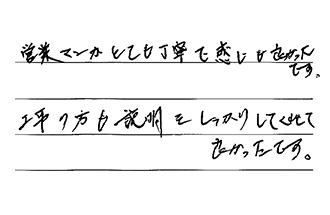 営業マンがとても丁寧で感じも良かった
です。
工事の方も説明をしっかりしてくれて
良かったです。